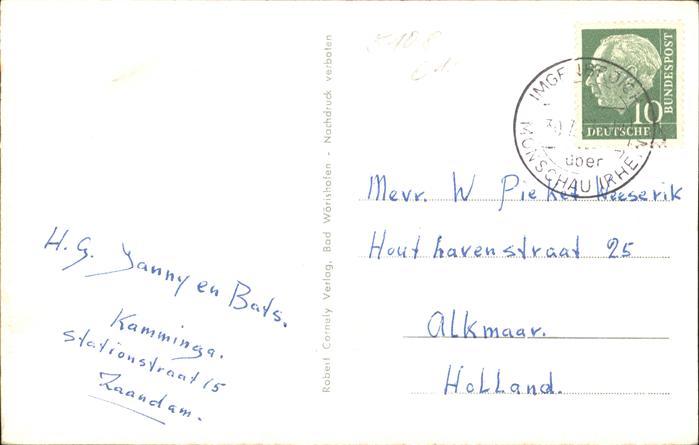 H. G. Janny en Bats.
Kamminga.
Stationstraat 15
Zaandam.
Robert Cornuly Verlag, Bad Wörishofen - Nachdruck verboten
10
DEUTSCHE
BUNDESPOST
über
MONSCHAU (RHEIN
Mevr. W
Hout havenstraat 25
Alkmaar.
Holland.